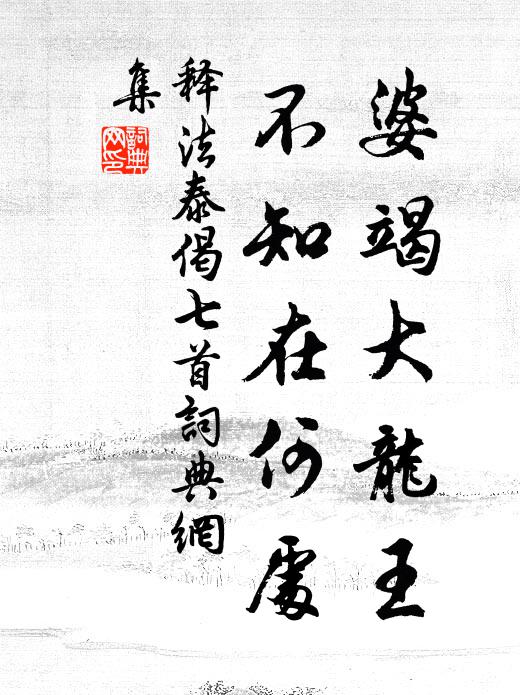 婆竭大龍王
不知在何處
释法泰偈七首詞典網
集
詞典
网印